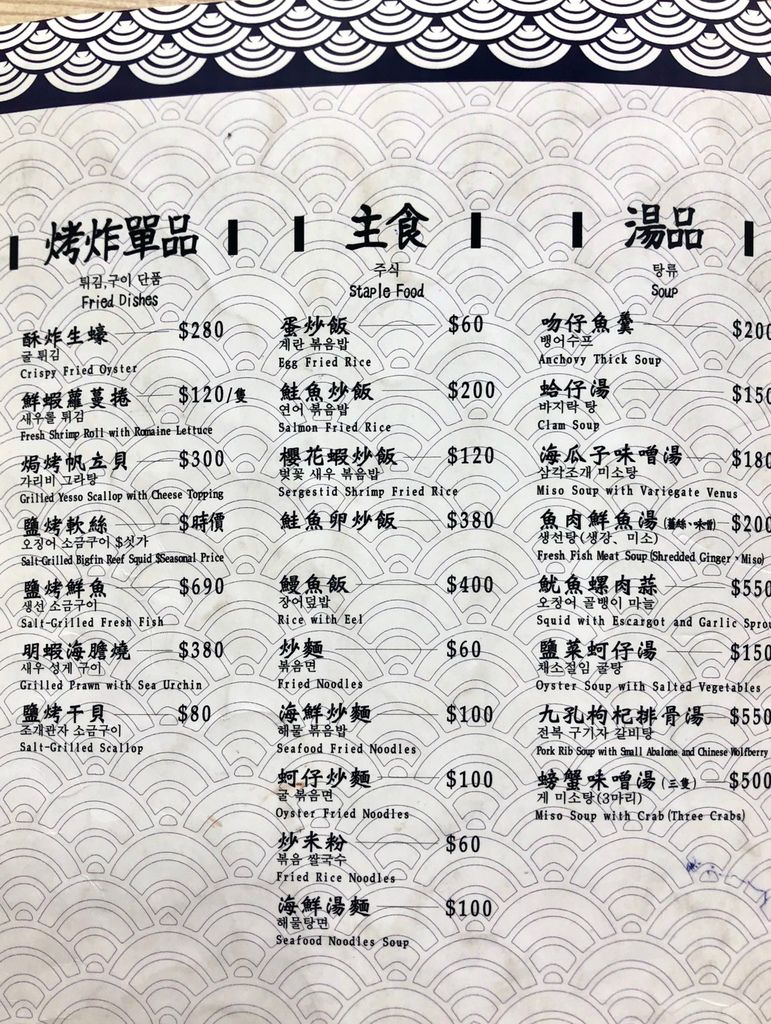 烤炸單品
튀김,구이 단품
Fried Dishes
酥炸生蠔 $280
굴 튀김
Crispy Fried Oyster
鮮蝦蘿蔓捲 $120/隻
새우롤 튀김
Fresh Shrimp Roll with Romaine Lettuce
焗烤帆立貝 $300
가리비 그라탕
Grilled Yesso Scallop with Cheese Topping
鹽烤軟絲 $時價
오징어 소금구이 $싯가
Salt-Grilled Bigfin Reef Squid $Seasonal Price
鹽烤鮮魚 $690
생선 소금구이
Salt-Grilled Fresh Fish
明蝦海膽燒 $380
새우 성게 구이
Grilled Prawn with Sea Urchin
鹽烤干貝 $80
조개관자 소금구이
Salt-Grilled Scallop
主食
주식
Staple Food
蛋炒飯 $60
계란 볶음밥
Egg Fried Rice
鮭魚炒飯 $200
연어 볶음밥
Salmon Fried Rice
櫻花蝦炒飯 $120
벚꽃 새우 볶음밥
Sergestid Shrimp Fried Rice
鮭魚卵炒飯 $380
鰻魚飯 $400
장어덮밥
Rice with Eel
炒麵 $60
볶음면
Fried Noodles
海鮮炒麵 $100
해물 볶음밥
Seafood Fried Noodles
蚵仔炒麵 $100
굴 볶음면
Oyster Fried Noodles
炒米粉 $60
볶음 쌀국수
Fried Rice Noodles
海鮮湯麵 $100
해물탕면
Seafood Noodles Soup
湯品
탕류
Soup
吻仔魚羹 $200
뱅어수프
Anchovy Thick Soup
蛤仔湯 $150
바지락 탕
Clam Soup
海瓜子味噌湯 $180
삼각조개 미소탕
Miso Soup with Variegate Venus
魚肉鮮魚湯(薑絲、味噌) $200
생선탕(생강, 미소)
Fresh Fish Meat Soup(Shredded Ginger、Miso)
魷魚螺肉蒜 $550
오징어 골뱅이 마늘
Squid with Escargot and Garlic Sprou
鹽菜蚵仔湯 $150
채소절임 굴탕
Oyster Soup with Salted Vegetables
九孔枸杞排骨湯 $550
전복 구기자 갈비탕
Pork Rib Soup with Small Abalone and Chinese Wolfberry
螃蟹味噌湯(三隻) $500
게 미소탕(3마리)
Miso Soup with Crab(Three Crabs)